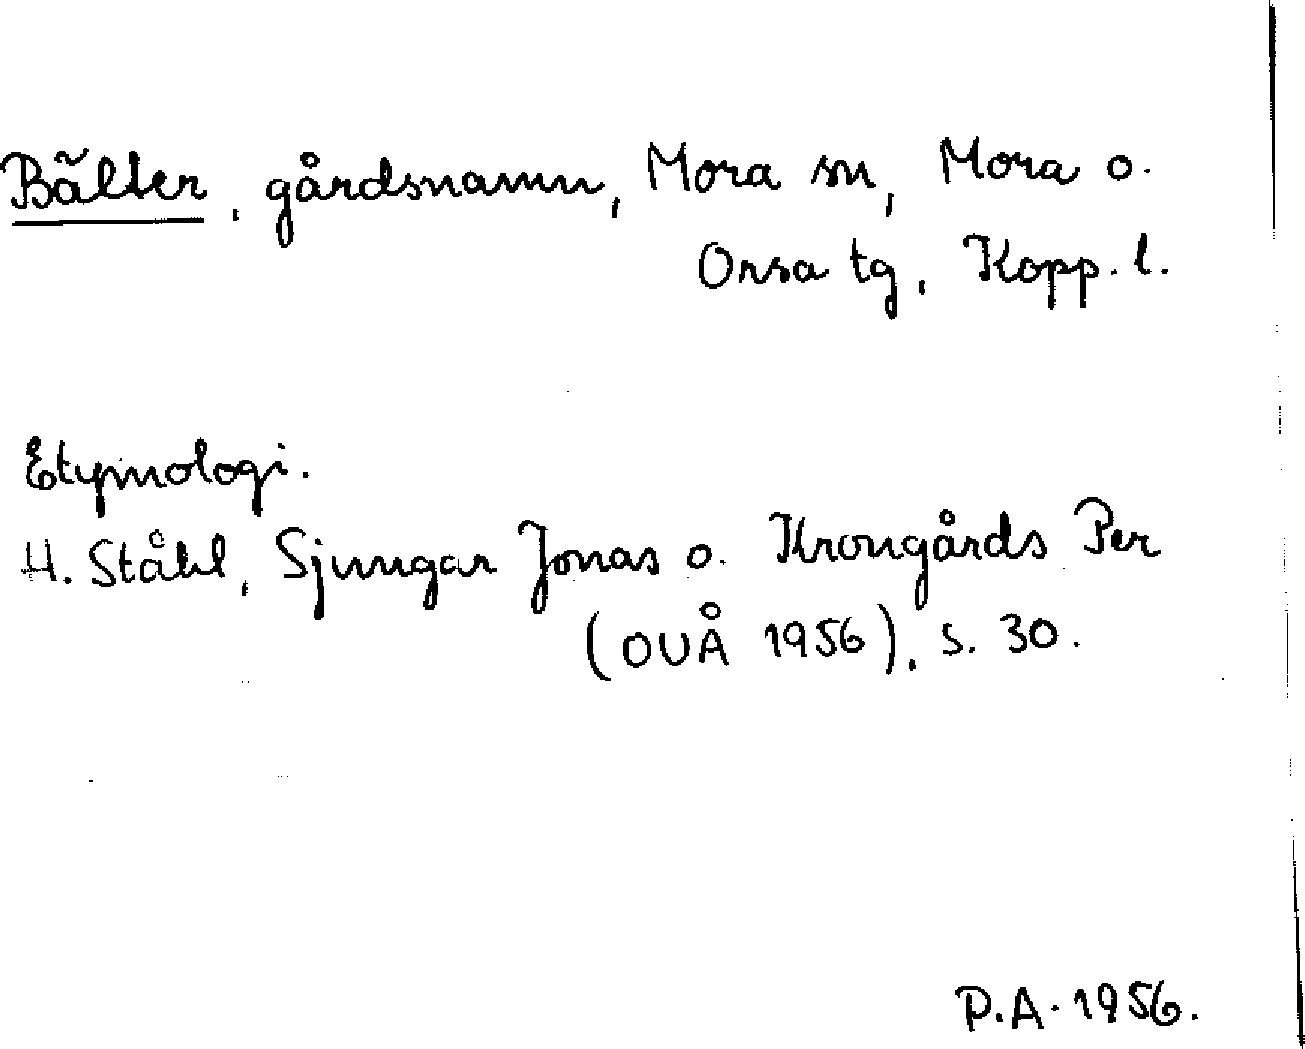 Bälter, gårdsnamn, Mora sn, Mora o.
Orsa tg, Kopp. l.
Etymologi.
H. Ståhl, Sjungar Jonas o. Krongårds Per
(OUÅ 1956), s. 30.
P.A. 1956.